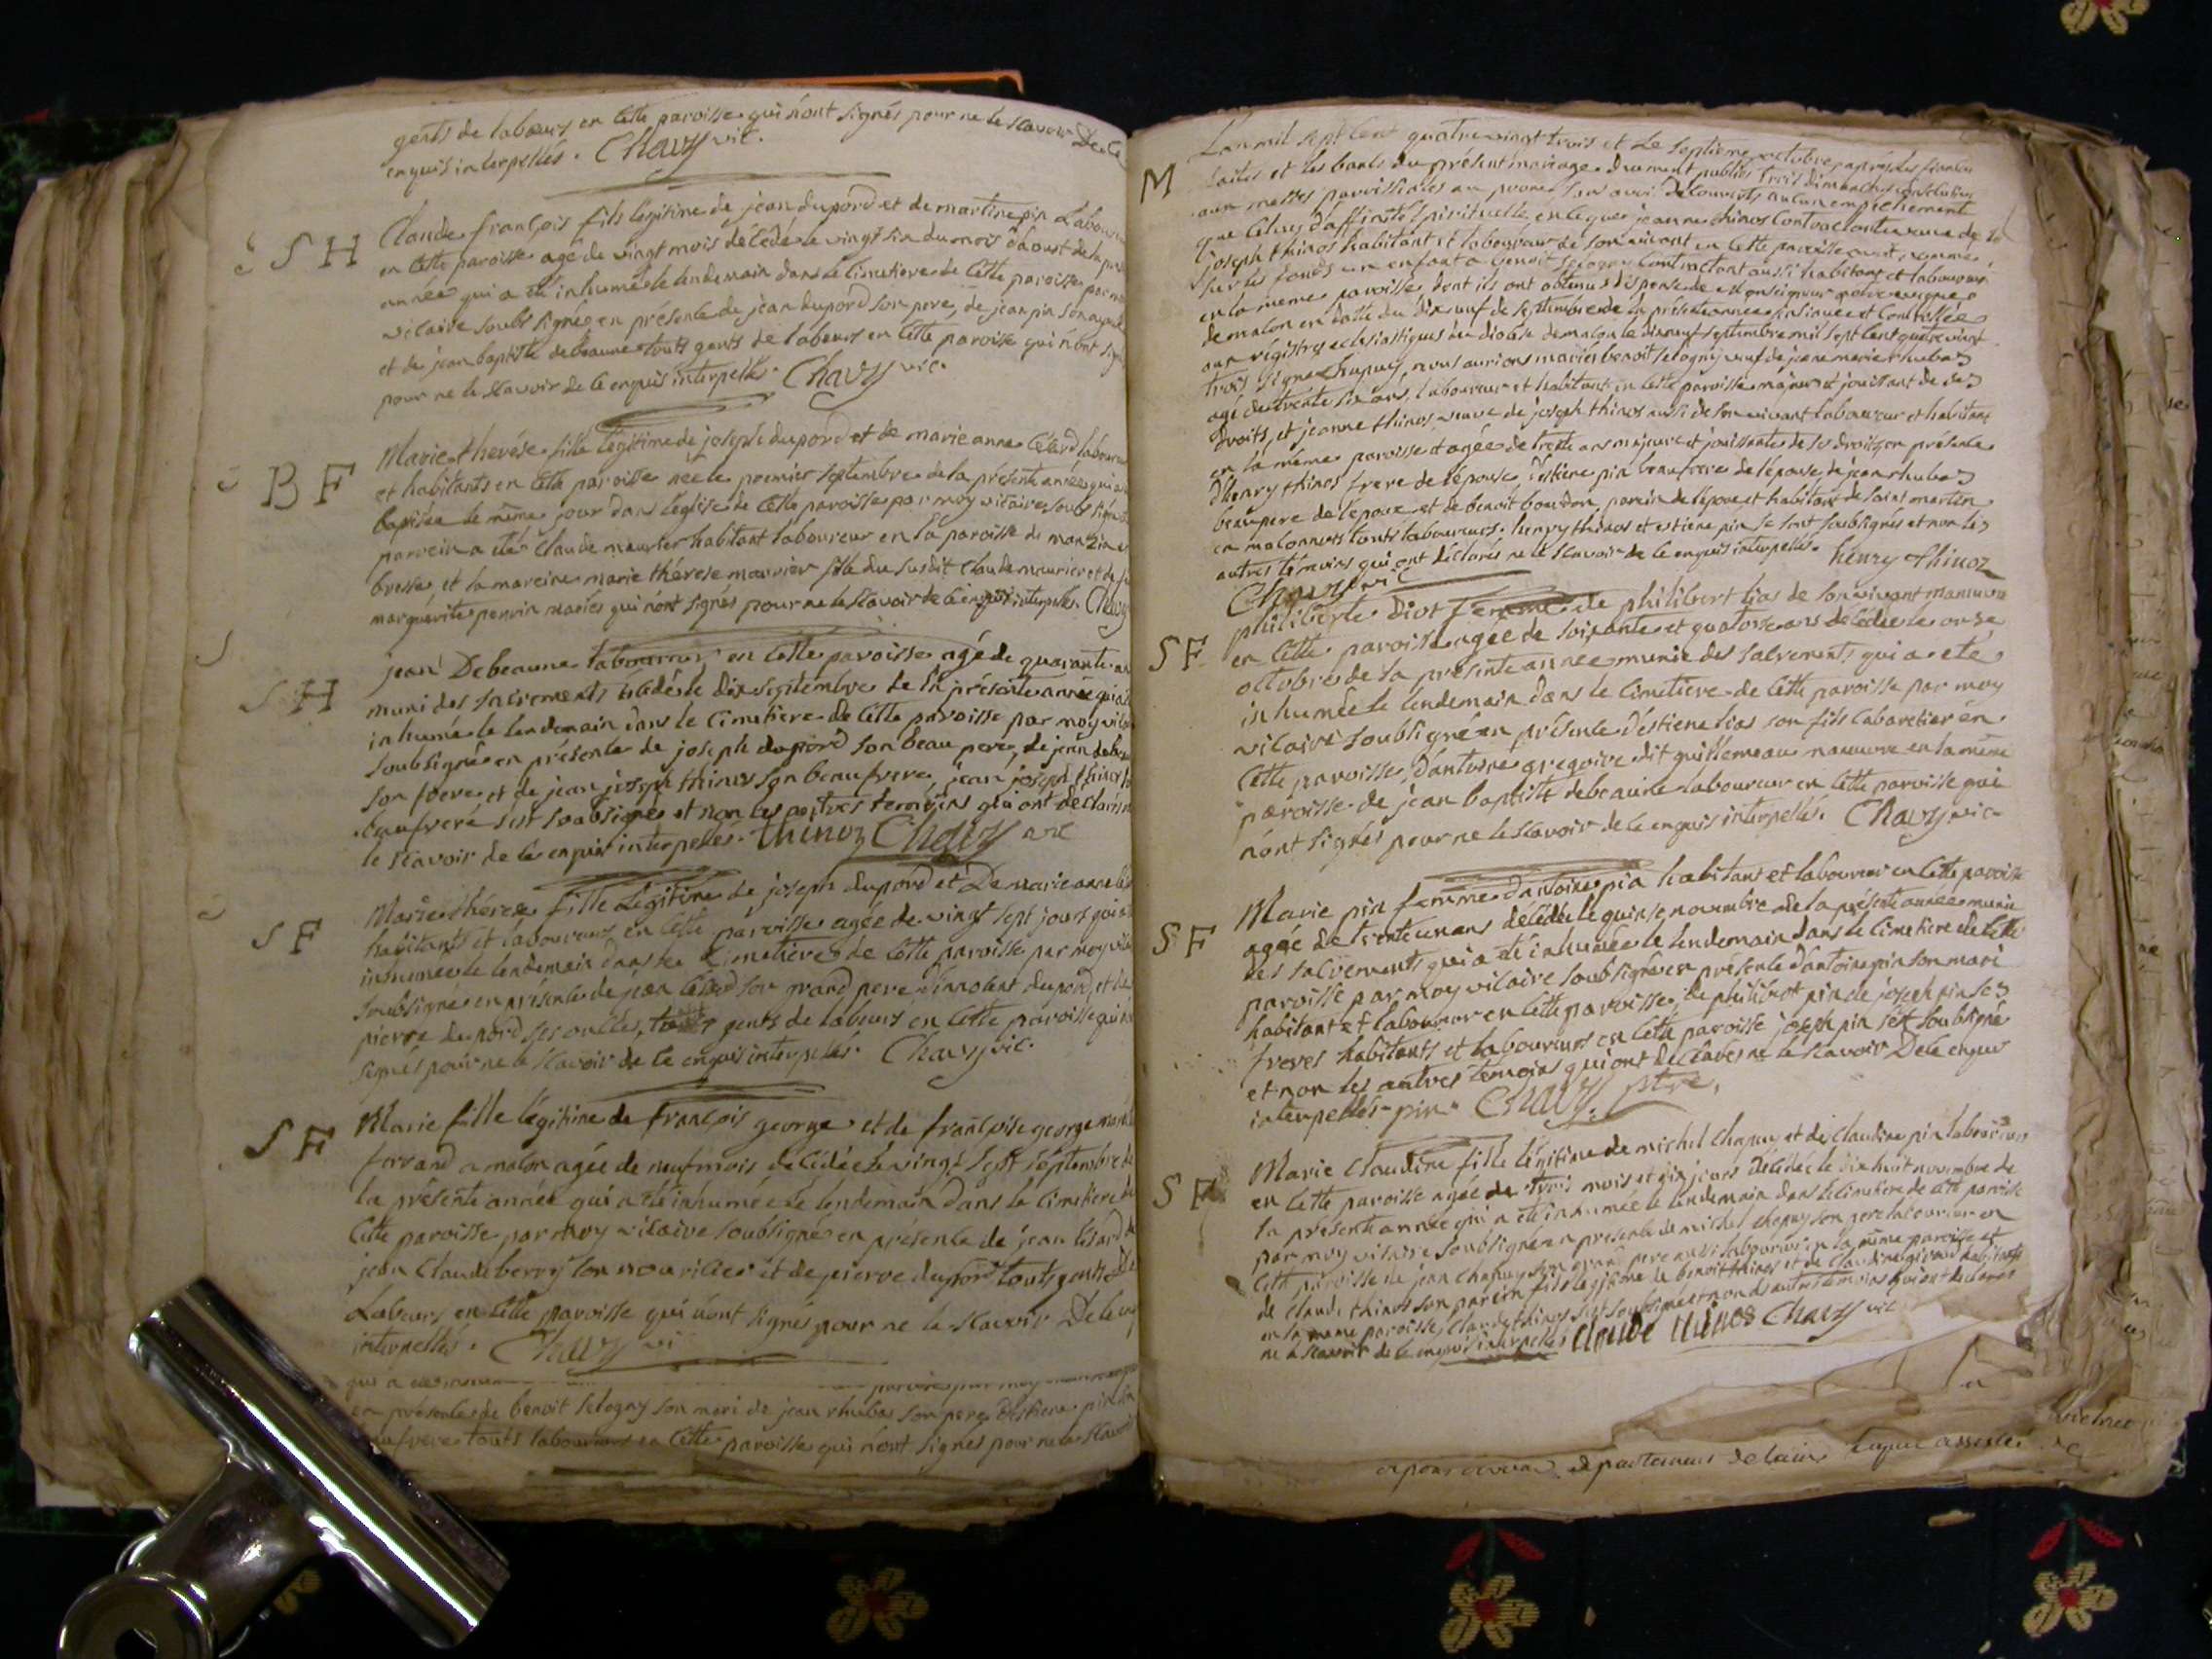 gents de labeurs en cette paroisse qui n'ont signés pour ne le scavoir De ce
enquis interpellés. Chavy vic.
S H
Claude françois fils legitime de jean dupord et de martine pin Laboureurs
en cette paroisse agé de vingt mois décédé le vingt six du mois d'aoust de la
année qui a été inhumé le lendemain dans le cimetiere de cette paroisse par moy
vicaire soubsigné en présence de jean dupord son pere, de jean pin son
et de jean baptiste debeaune touts gents de labeurs en cette paroisse qui n'ont
pour ne le scavoir de ce enquis interpellés. Chavy vic.
B F
Marie therése fille légitime de joseph dupord et de marie anne
et habitants en cette paroisse née le premier septembre de la présente année qui a
baptisée le même jour dans l'eglise de cette paroisse par moy vicaire soubsigné
parrein a été Claude meurier habitant laboureur en la paroisse de
bresse, et la mareine marie thérese maurier fille du susdit Claude meurier et de
marguerite perrin mariés qui n'ont signés pour ne le scavoir de ce enquis interpellés. Chavy
S H
jean Debeaune laboureur en cette paroisse agé de quarante
muni des sacrements décédé le dix septembre de la présente année qui a
inhumé le lendemain dans le cimetiere de cette paroisse par moy
soubsigné en présence de joseph dupord son beau pere, de jean
son frere et de jean joseph thinos son beaufrere, jean joseph thinos
beaufrere s'est soubsigné et non les autres temoins qui ont déclarés
le scavoir de ce enquis interpellés. thinoz Chavy vic
S F
Marie thérese fille Légitime de joseph dupord et De marie anne
habitants et laboureurs en cette paroisse agée de vingt sept jours qui
inhumée le lendemain dans le cimetiere de cette paroisse par moy
soubsigné en présence de jean son grand pere d'innocent dupord, et de
pierre dupord ses oncles, touts gents de labeurs en cette paroisse qui
signés pour ne le scavoir de ce enquis interpellés. Chavy vic.
S F
Marie fille légitime de françois george et de françoise george
a agée de neuf mois décédée le vingt sept septembre de
la présente année qui a été inhumée le lendemain dans le cimetiere de
cette paroisse par moy vicaire soubsigné en présence de jean
jean Claude berry son nouricier et de pierre dupord touts gents De
Labeurs en cette paroisse qui n'ont signés pour ne le scavoir De ce
interpellés. Chavy vi
qui a
en présence de benoit selogny son mari de jean rhubas son pere d'estiene pin
touts laboureurs en cette paroisse qui n'ont signés pour ne le scavoir
M
L'an mil sept cent quatre vingt trois et Le septieme octobre apres les fiancailles
faites et les bans du présent mariage dument publiés trois dimanches consecutifs
aux messes paroissiales au prone sans avoir découverts aucun empechement
que celuy d'affinité spirituelle en ce que jeanne thinos contractante veuve de
joseph thinos habitant et laboureur de son vivant en cette paroisse
sur les fonds un enfant a benoit selogny contractant aussi habitant et laboureur
en la meme paroisse dont ils ont obtenus dispense de Monseigneur notre eveque
de malon en datte du dix neuf de septembre de la présente année insinuée et controllée
aux régistres eclesiastiques du diocese de malon le dix neuf septembre mil sept cent quatre vint
trois signé chapuy, nous aurions mariés benoit selogny veuf de jeane marie rhubas
agé de trente six ans, laboureur et habitant en cette paroisse majeur et jouissant de ses
droits, et jeanne thinos veuve de joseph thinos aussi de son vivant laboureur et habitant
en la même paroisse et agée de trente ans majeure et jouissante de ses droits, en présence
d'henry thinos frere de l'épouse, d'estiene pin beaufrere de l'époux, de jean rhubas
beaupere de l'epoux et de benoit bourdon, parein de l'epoux et habitant de saint martin
en malonnois touts laboureurs. henry thinos et estiene pin se sont soubsignés et non les
autres témoins qui ont déclarés ne le scavoir de ce enquis interpellés. henry thinoz
Chavy vic
S F
philiberte diot femme de philibert lias de son vivant manuvre
en cette paroisse agée de soixante et quatorse ans décédée le onze
octobre de la présente année munie des sacrements qui a eté
inhumée le lendemain dans le cimetiere de cette paroisse par moy
vicaire soubsigné en présence d'estiene lias son fils cabaretier en
cette paroisse, d'antoine gregoire dit guillemeau manuvre en la même
paroisse de jean baptiste debeaune laboureur en cette paroisse qui
n'ont signés pour ne le scavoir de ce enquis interpellés. Chavy vic
S F
Marie pin femme d'antoine pin habitant et laboureur en cette paroisse
agée de trente un ans décédée le quinse novembre de la présente année munie
des sacrements qui a été inhumée le lendemain dans le cimetiere de cette
paroisse par moy vicaire soubsigné en présence d'antoine pin son mari
habitant et laboureur en cette paroisse, de philibert pin de joseph pin ses
freres habitants et laboureurs en cette paroisse joseph pin s'est soubsigné
et non les autres temoins qui ont déclarés ne le scavoir De ce enquis
interpellés. pin. Chavy. ptre.
S F
Marie Claudine fille légitime de michel chapuy et de claudine pin laboureurs
en cette paroisse agée de trois mois et dix jours décédée le dix huit novembre de
la présente année qui a été inhumée le lendemain dans le cimetiere de cette paroisse
par moy vicaire soubsigné en présence de michel chapuy son pere laboureur en
cette paroisse de jean chapuy son grand pere aussi laboureur en la même paroisse et
de claude thinos son parein fils légitime de benoit thinos et de claudine girard habitants
en la même paroisse, Claude thinos s'est soubsigné et non les autres témoins qui ont déclarés
ne le scavoir de ce enquis interpellés Claude thinos Chavy vic
departement de l'ain